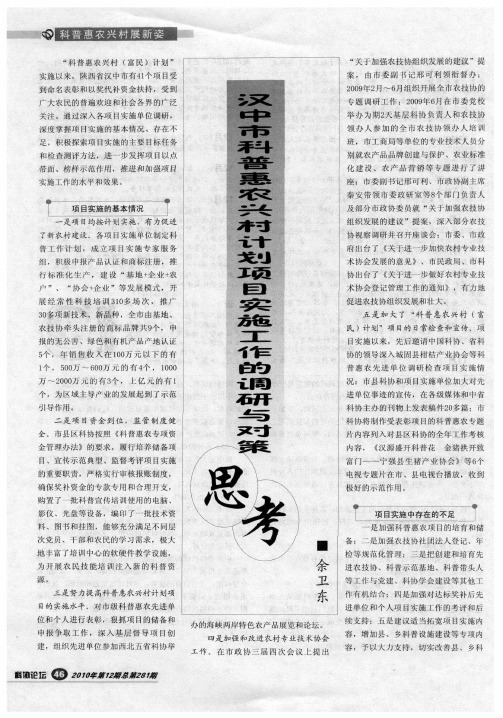 科普惠农兴村展新姿
“科普惠农兴村（富民）计划”
实施以来，陕西省汉中市有41个项目受
到命名表彰和以奖代补资金扶持，受到
广大农民的普遍欢迎和社会各界的广泛
关注。通过深入各项目实施单位调研，
深度掌握项目实施的基本情况、存在不
足，积极探索项目实施的主要目标任务
和检查测评方法，进一步发挥项目以点
带面、榜样示范作用，推进和加强项目
实施工作的水平和效果。
项目实施的基本情况
一是项目均按计划实施，有力促进
了新农村建设。各项目实施单位制定科
普工作计划，成立项目实施专家服务
组，积极申报产品认证和商标注册，推
行标准化生产，建设“基地+企业+农
户”、“协会+企业”等发展模式，开
展经常性科技培训310多场次，推广
30多项新技术、新品种，全市由基地、
农技协牵头注册的商标品牌共9个，申
报的无公害、绿色和有机产品产地认证
5个，年销售收入在100万元以下的有
1个，500万～600万元的有4个，1000
万～2000万元的有3个，上亿元的有1
个，为区域主导产业的发展起到了示范
引导作用。
二是项目资金到位，监管制度健
全。市县区科协按照《科普惠农专项资
金管理办法》的要求，履行培养储备项
目、宣传示范典型、监督考评项目实施
的重要职责，严格实行审核报账制度，
确保奖补资金的专款专用和合理开支，
购置了一批科普宣传培训使用的电脑、
影仪、光盘等设备，编印了一批技术资
料、图书和挂图，能够充分满足不同层
次党员、干部和农民的学习需求，极大
地丰富了培训中心的软硬件教学设施，
为开展农民技能培训注入新的科普资
源。
三是努力提高科普惠农兴村计划项
目的实施水平。对市级科普惠农先进单
位和个人进行表彰，狠抓项目的储备和
申报争取工作，深入基层督导项目创
建，组织先进单位参加西北五省科协举
汉中市科普惠农兴村计划项目实施工作的调研与对策
思考
■余卫东
办的海峡两岸特色农产品展览和论坛。
四是加强和改进农村专业技术协会
工作。在市政协三届四次会议上提出
“关于加强农技协组织发展的建议”提
案，由市委副书记邢可利领衔督办；
2009年2月～6月组织开展全市农技协的
专题调研工作；2009年6月在市委党校
举办为期2天基层科协负责人和农技协
领办人参加的全市农技协领办人培训
班，市工商局等单位的专业技术人员分
别就农产品品牌创建与保护、农业标准
化建设、农产品营销等专题进行了讲
座；市委副书记邢可利、市政协副主席
秦安带领市委政研室等8个部门负责人
及部分市政协委员就“关于加强农技协
组织发展的建议”提案，深入部分农技
协视察调研并召开座谈会；市委、市政
府出台了《关于进一步加快农村专业技
术协会发展的意见》、市民政局、市科
协出台了《关于进一步做好农村专业技
术协会登记管理工作的通知》，有力地
促进农技协组织发展和壮大。
五是加大了“科普惠农兴村（富
民）计划”项目的日常检查和宣传。项
目实施以来，先后邀请中国科协、省科
协的领导深入城固县柑桔产业协会等科
普惠农先进单位调研检查项目实施情
况；市县科协和项目实施单位加大对先
进单位事迹的宣传，在各级媒体和中省
科协主办的刊物上发表稿件20多篇；市
科协将制作受表彰项目的科普惠农专题
片内容列入对县区科协的全年工作考核
内容，《汉源盛开科普花　金猪拱开致
富门——宁强县生猪产业协会》等6个
电视专题片在市、县电视台播放，收到
极好的示范作用。
项目实施中存在的不足
一是加强科普惠农项目的培育和储
备；二是加强农技协社团法人登记、年
检等规范化管理；三是把创建和培育先
进农技协、科普示范基地、科普带头人
等工作与党建、科协学会建设等其他工
作有机结合；四是加强对达标奖补后先
进单位和个人项目实施工作的考评和后
续支持；五是建议适当拓宽项目实施内
容，增加县、乡科普设施建设等专项内
容，予以大力支持，切实改善县、乡科
科协论坛 46 2010年第12期总第281期